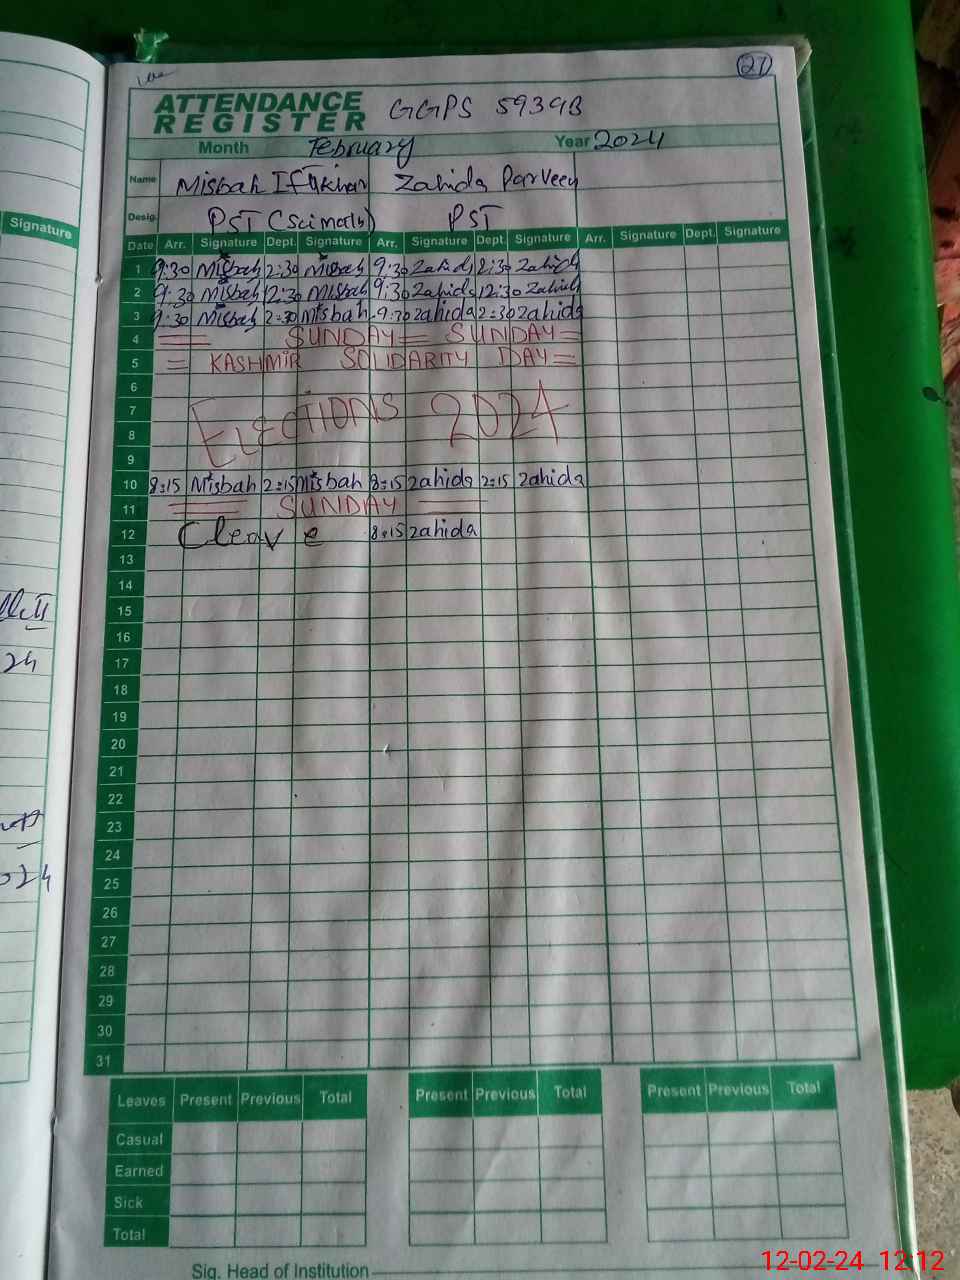 27
ATTENDANCE REGISTER GGPS 5939B
Month February Year 2024
Name Misbah Iftikhar Zahida Parveen
Desig. PST (Sci math) PST
Signature
Date Arr. Signature Dept. Signature Arr. Signature Dept. Signature Arr. Signature Dept. Signature
1 9:30 Misbah 2:30 Misbah 9:30 Zahida 2:30 Zahida
2 9:30 Misbah 12:30 Misbah 9:30 Zahida 12:30 Zahida
3 9:30 Misbah 2:30 Misbah 9:30 Zahida 2:30 Zahida
4 SUNDAY = SUNDAY =
5 = KASHMIR SOLIDARITY DAY =
6
7 ELECTIONS 2024
8
9
10 8:15 Misbah 2:15 Misbah 8:15 Zahida 2:15 Zahida
11 SUNDAY
12 C leave 8:15 Zahida
13
14
15
16
24
17
18
19
20
21
22
23
24
25
26
27
28
29
30
31
Leaves Present Previous Total Present Previous Total Present Previous Total
Casual
Earned
Sick
Total
Sig. Head of Institution
12-02-24 12:12